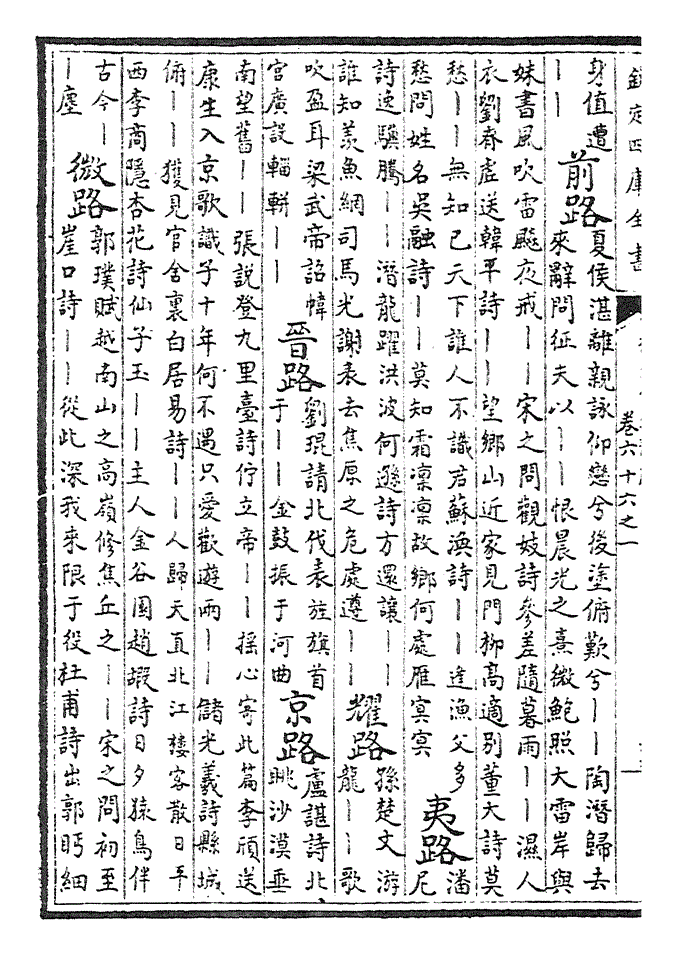 欽定四庫全書
卷六十六之一
身值遭
丨丨
前路
夏侯湛離親詠仰戀兮後塗俯歎兮丨丨陶潛歸去
來辭問征夫以丨丨恨晨光之熹微鮑照大雷岸與
妹書風吹雷飈夜戒丨丨宋之問觀妓詩參差隨暮雨丨丨濕人
衣劉眘虛送韓平詩丨丨望鄉山近家見門柳高適別董大詩莫
愁丨丨無知己天下誰人不識君蘇渙詩丨丨逢漁父多
愁問姓名吳融詩丨丨莫知霜凛凛故鄉何處雁冥冥
夷路
潘
尼
詩逸驥騰丨丨潛龍躍洪波何遜詩方還讓丨丨
誰知羡魚網司馬光謝表去焦原之危處遵丨丨
耀路
孫楚文游
龍丨丨歌
吹盈耳梁武帝詔幃
宮廣設輜軿丨丨
晉路
劉琨請北伐表旌旗首
于丨丨金鼓振于河曲
京路
盧諶詩北
眺沙漠垂
南望舊丨丨張說登九里臺詩佇立帝丨丨揺心寄此篇李頎送
康生入京歌識子十年何不遇只愛歡遊兩丨丨儲光羲詩縣城
俯丨丨獲見官舍裏白居易詩丨丨人歸天直北江樓客散日平
西李商隱杏花詩仙子玉丨丨主人金谷園趙嘏詩日夕猿鳥伴
古今丨
丨塵
微路
郭璞賦越南山之高嶺修焦丘之丨丨宋之問初至
崖口詩丨丨從此深我來限于役杜甫詩出郭眄細